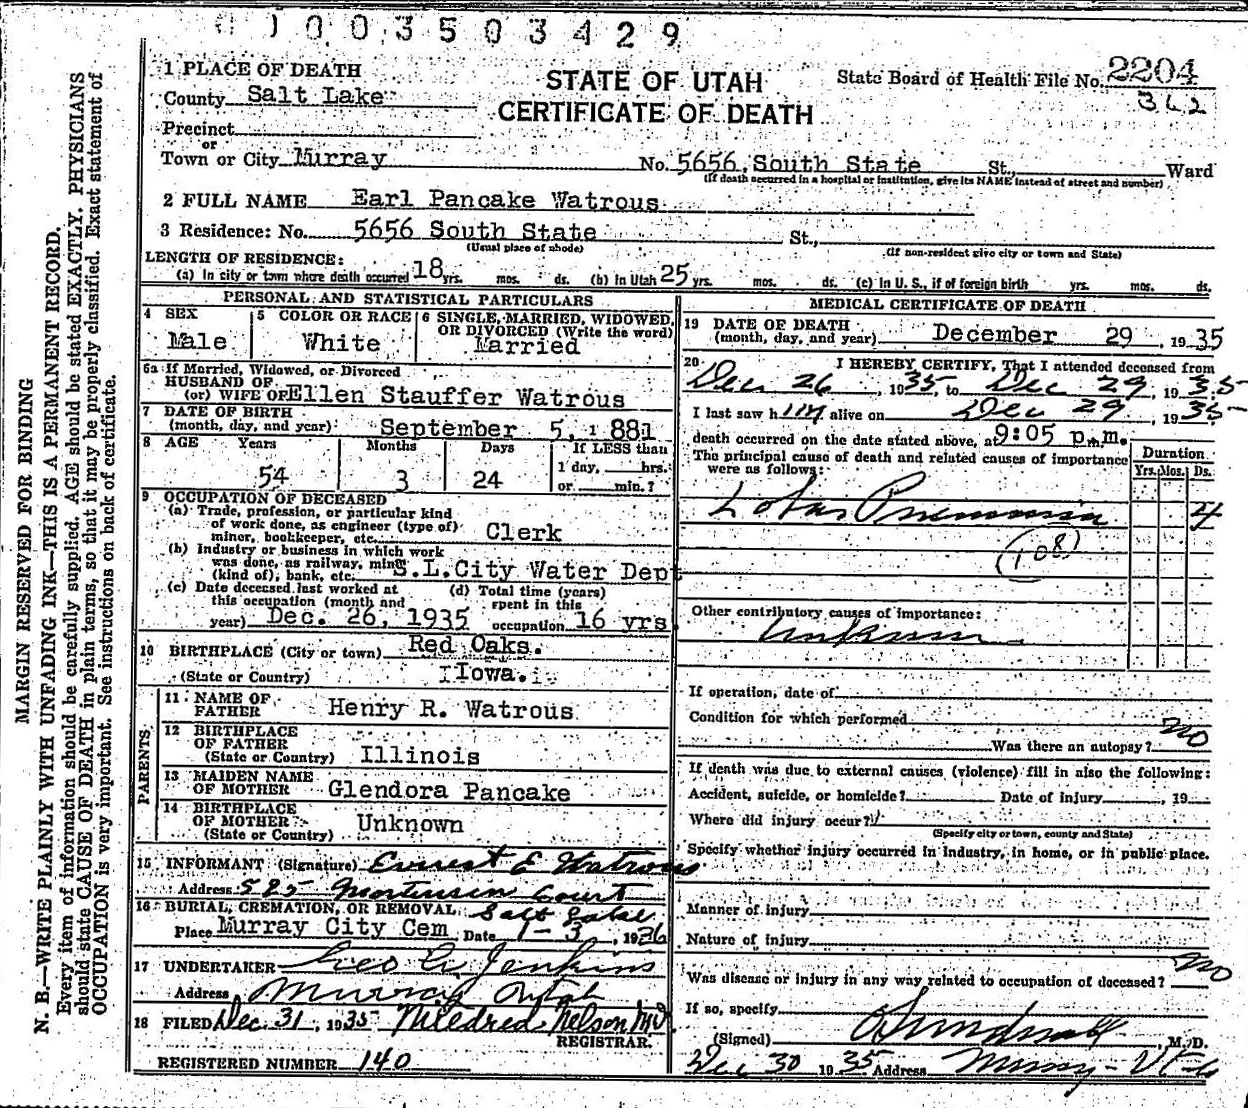 0 0 3 5 0 3 4 2 9
STATE OF UTAH
CERTIFICATE OF DEATH
State Board of Health File No. 2204
362
1 PLACE OF DEATH
County Salt Lake
Precinct
or
Town or City Murray No. 5656 South State St., Ward
(If death occurred in a hospital or institution, give its NAME instead of street and number)
2 FULL NAME Earl Pancake Watrous
3 Residence: No. 5656 South State St.,
(Usual place of abode) (If non-resident give city or town and State)
LENGTH OF RESIDENCE:
(a) In city or town where death occurred 18 yrs. mos. ds. (b) In Utah 25 yrs. mos. ds. (c) In U. S., if of foreign birth yrs. mos. ds.
PERSONAL AND STATISTICAL PARTICULARS
4 SEX
Male
5 COLOR OR RACE
White
6 SINGLE, MARRIED, WIDOWED,
OR DIVORCED (Write the word)
Married
6a If Married, Widowed, or Divorced
HUSBAND OF
(or) WIFE OF Ellen Stauffer Watrous
7 DATE OF BIRTH
(month, day, and year) September 5, 1881
8 AGE Years Months Days If LESS than
54 3 24 1 day, hrs.
or min.?
9 OCCUPATION OF DECEASED
(a) Trade, profession, or particular kind
of work done, as engineer (type of)
minor, bookkeeper, etc. Clerk
(b) Industry or business in which work
was done, as railway, mine
(kind of), bank, etc. S.L.City Water Dept
(c) Date deceased last worked at
this occupation (month and
year) Dec. 26, 1935
(d) Total time (years)
spent in this
occupation 16 yrs.
10 BIRTHPLACE (City or town) Red Oaks.
(State or Country) Iowa.
PARENTS
11 NAME OF
FATHER Henry R. Watrous
12 BIRTHPLACE
OF FATHER
(State or Country) Illinois
13 MAIDEN NAME
OF MOTHER Glendora Pancake
14 BIRTHPLACE
OF MOTHER
(State or Country) Unknown
15 INFORMANT (Signature) Everest E Watrous
Address 525 Mortensen Court
Salt Lake
16 BURIAL, CREMATION, OR REMOVAL
Place Murray City Cem Date 1-3, 1936
17 UNDERTAKER Geo A. Jenkins
Address Murray Utah
18 FILED Dec. 31, 1935 Mildred Nelson MD
REGISTRAR.
REGISTERED NUMBER 140
MEDICAL CERTIFICATE OF DEATH
19 DATE OF DEATH
(month, day, and year) December 29, 1935
20 I HEREBY CERTIFY, That I attended deceased from
Dec 26, 1935, to Dec 29, 1935
I last saw him alive on Dec 29, 1935
death occurred on the date stated above, at 9:05 p.m.
The principal cause of death and related causes of importance
were as follows:
Duration
Yrs. Mos. Ds.
Lobar Pneumonia 4
(108)
Other contributory causes of importance:
Unknown
If operation, date of
Condition for which performed
Was there an autopsy? no
If death was due to external causes (violence) fill in also the following:
Accident, suicide, or homicide? Date of injury , 19
Where did injury occur?
(Specify city or town, county and State)
Specify whether injury occurred in industry, in home, or in public place.
Manner of injury
Nature of injury
Was disease or injury in any way related to occupation of deceased? no
If so, specify
(Signed) , M. D.
Dec 30 1935 Address Murray - Utah
MARGIN RESERVED FOR BINDING
N. B.—WRITE PLAINLY WITH UNFADING INK—THIS IS A PERMANENT RECORD.
Every item of information should be carefully supplied. AGE should be stated EXACTLY. PHYSICIANS
should state CAUSE OF DEATH in plain terms, so that it may be properly classified. Exact statement of
OCCUPATION is very important. See instructions on back of certificate.